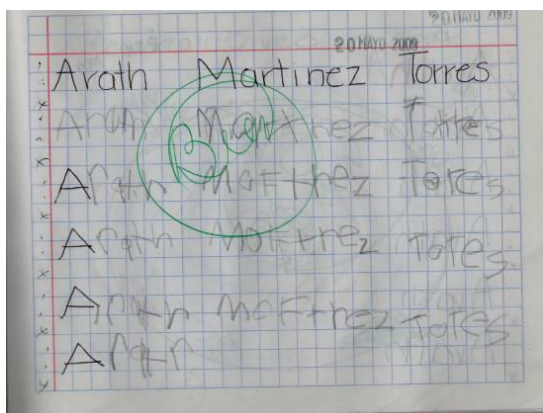 20 MAYO 2009
20 MAYO 2009
Arath Martinez Torres
Arath Martnez Torres
Arath Marthez Torces
Arath Marthrez Tores
Arath Marthrez Tores
Arar